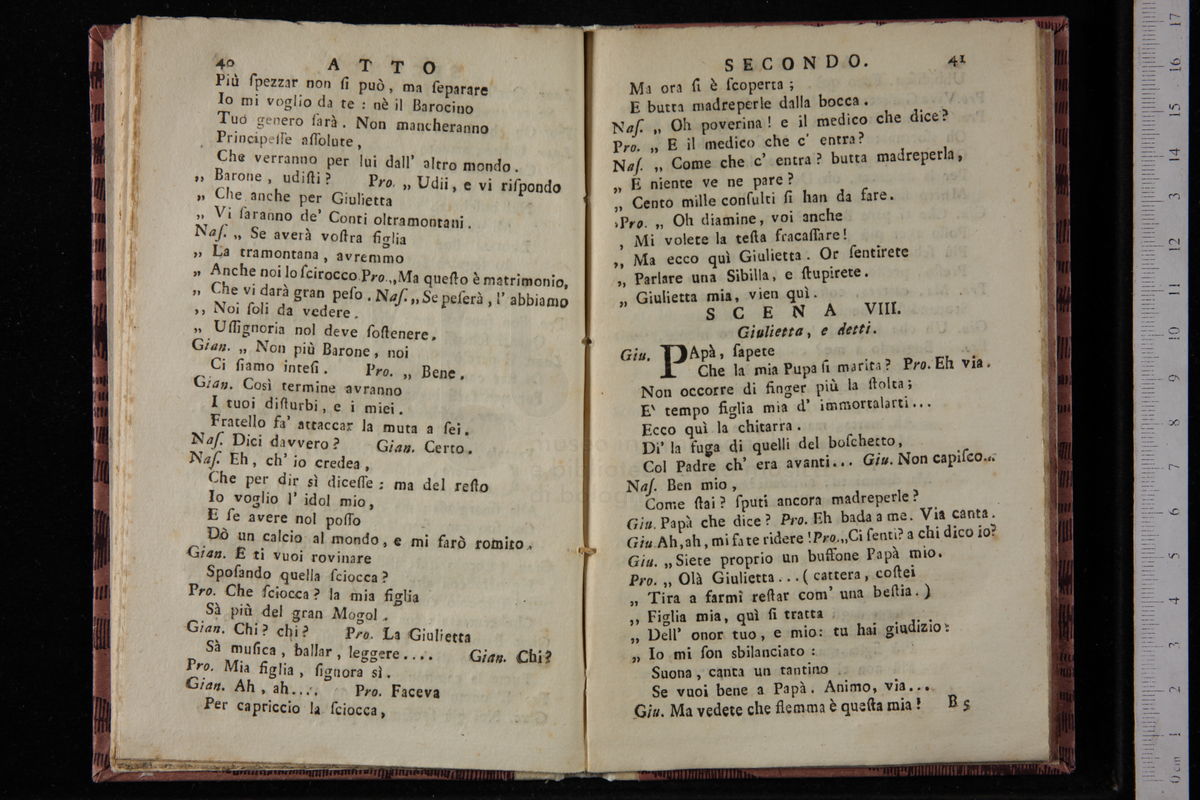 40 ATTO
Più ſpezzar non ſi può, ma ſeparare
Io mi voglio da te : nè il Barocino
Tuo genero ſarà. Non mancheranno
Principeſſe aſſolute,
Che verranno per lui dall' altro mondo.
„ Barone, udiſti? Pro. „ Udii, e vi riſpondo
„ Che anche per Giulietta
„ Vi ſaranno de' Conti oltramontani.
Naſ. „ Se averà voſtra figlia
„ La tramontana, avremmo
„ Anche noi lo ſcirocco Pro. „ Ma queſto è matrimonio,
„ Che vi darà gran peſo. Naſ. „ Se peſerà, l' abbiamo
,, Noi ſoli da vedere.
„ Uſſignoria nol deve ſoſtenere.
Gian. „ Non più Barone, noi
Ci ſiamo inteſi. Pro. „ Bene.
Gian. Così termine avranno
I tuoi diſturbi, e i miei.
Fratello fa' attaccar la muta a ſei.
Naſ. Dici davvero? Gian. Certo.
Naſ. Eh, ch' io credea,
Che per dir sì diceſſe : ma del reſto
Io voglio l' idol mio,
E ſe avere nol poſſo
Dò un calcio al mondo, e mi farò romito.
Gian. E ti vuoi rovinare
Spoſando quella ſciocca?
Pro. Che ſciocca? la mia figlia
Sà più del gran Mogol.
Gian. Chi? chi? Pro. La Giulietta
Sà muſica, ballar, leggere.... Gian. Chi?
Pro. Mia figlia, ſignora sì.
Gian. Ah, ah.... Pro. Faceva
Per capriccio la ſciocca,
SECONDO. 41
Ma ora ſi è ſcoperta ;
E butta madreperle dalla bocca.
Naſ. „ Oh poverina! e il medico che dice?
Pro. „ E il medico che c' entra?
Naſ. „ Come che c' entra? butta madreperla,
„ E niente ve ne pare?
„ Cento mille conſulti ſi han da fare.
Pro. „ Oh diamine, voi anche
, Mi volete la teſta fracaſſare!
,, Ma ecco quì Giulietta. Or ſentirete
„ Parlare una Sibilla, e ſtupirete.
„ Giulietta mia, vien quì.
SCENA VIII.
Giulietta, e detti.
Giu. PApà, ſapete
Che la mia Pupa ſi marita? Pro. Eh via.
Non occorre di finger più la ſtolta;
E' tempo figlia mia d' immortalarti...
Ecco quì la chitarra.
Di' la fuga di quelli del boſchetto,
Col Padre ch' era avanti... Giu. Non capiſco...
Naſ. Ben mio,
Come ſtai? ſputi ancora madreperle?
Giu. Papà che dice? Pro. Eh bada a me. Via canta.
Giu Ah, ah, mi fate ridere! Pro. „ Ci ſenti? a chi dico io?
Giu. „ Siete proprio un buffone Papà mio.
Pro. „ Olà Giulietta... ( cattera, coſtei
„ Tira a farmi reſtar com' una beſtia. )
,, Figlia mia, quì ſi tratta
„ Dell' onor tuo, e mio: tu hai giudizio:
„ Io mi ſon sbilanciato :
Suona, canta un tantino
Se vuoi bene a Papà. Animo, via...
Giu. Ma vedete che flemma è queſta mia!
B 5